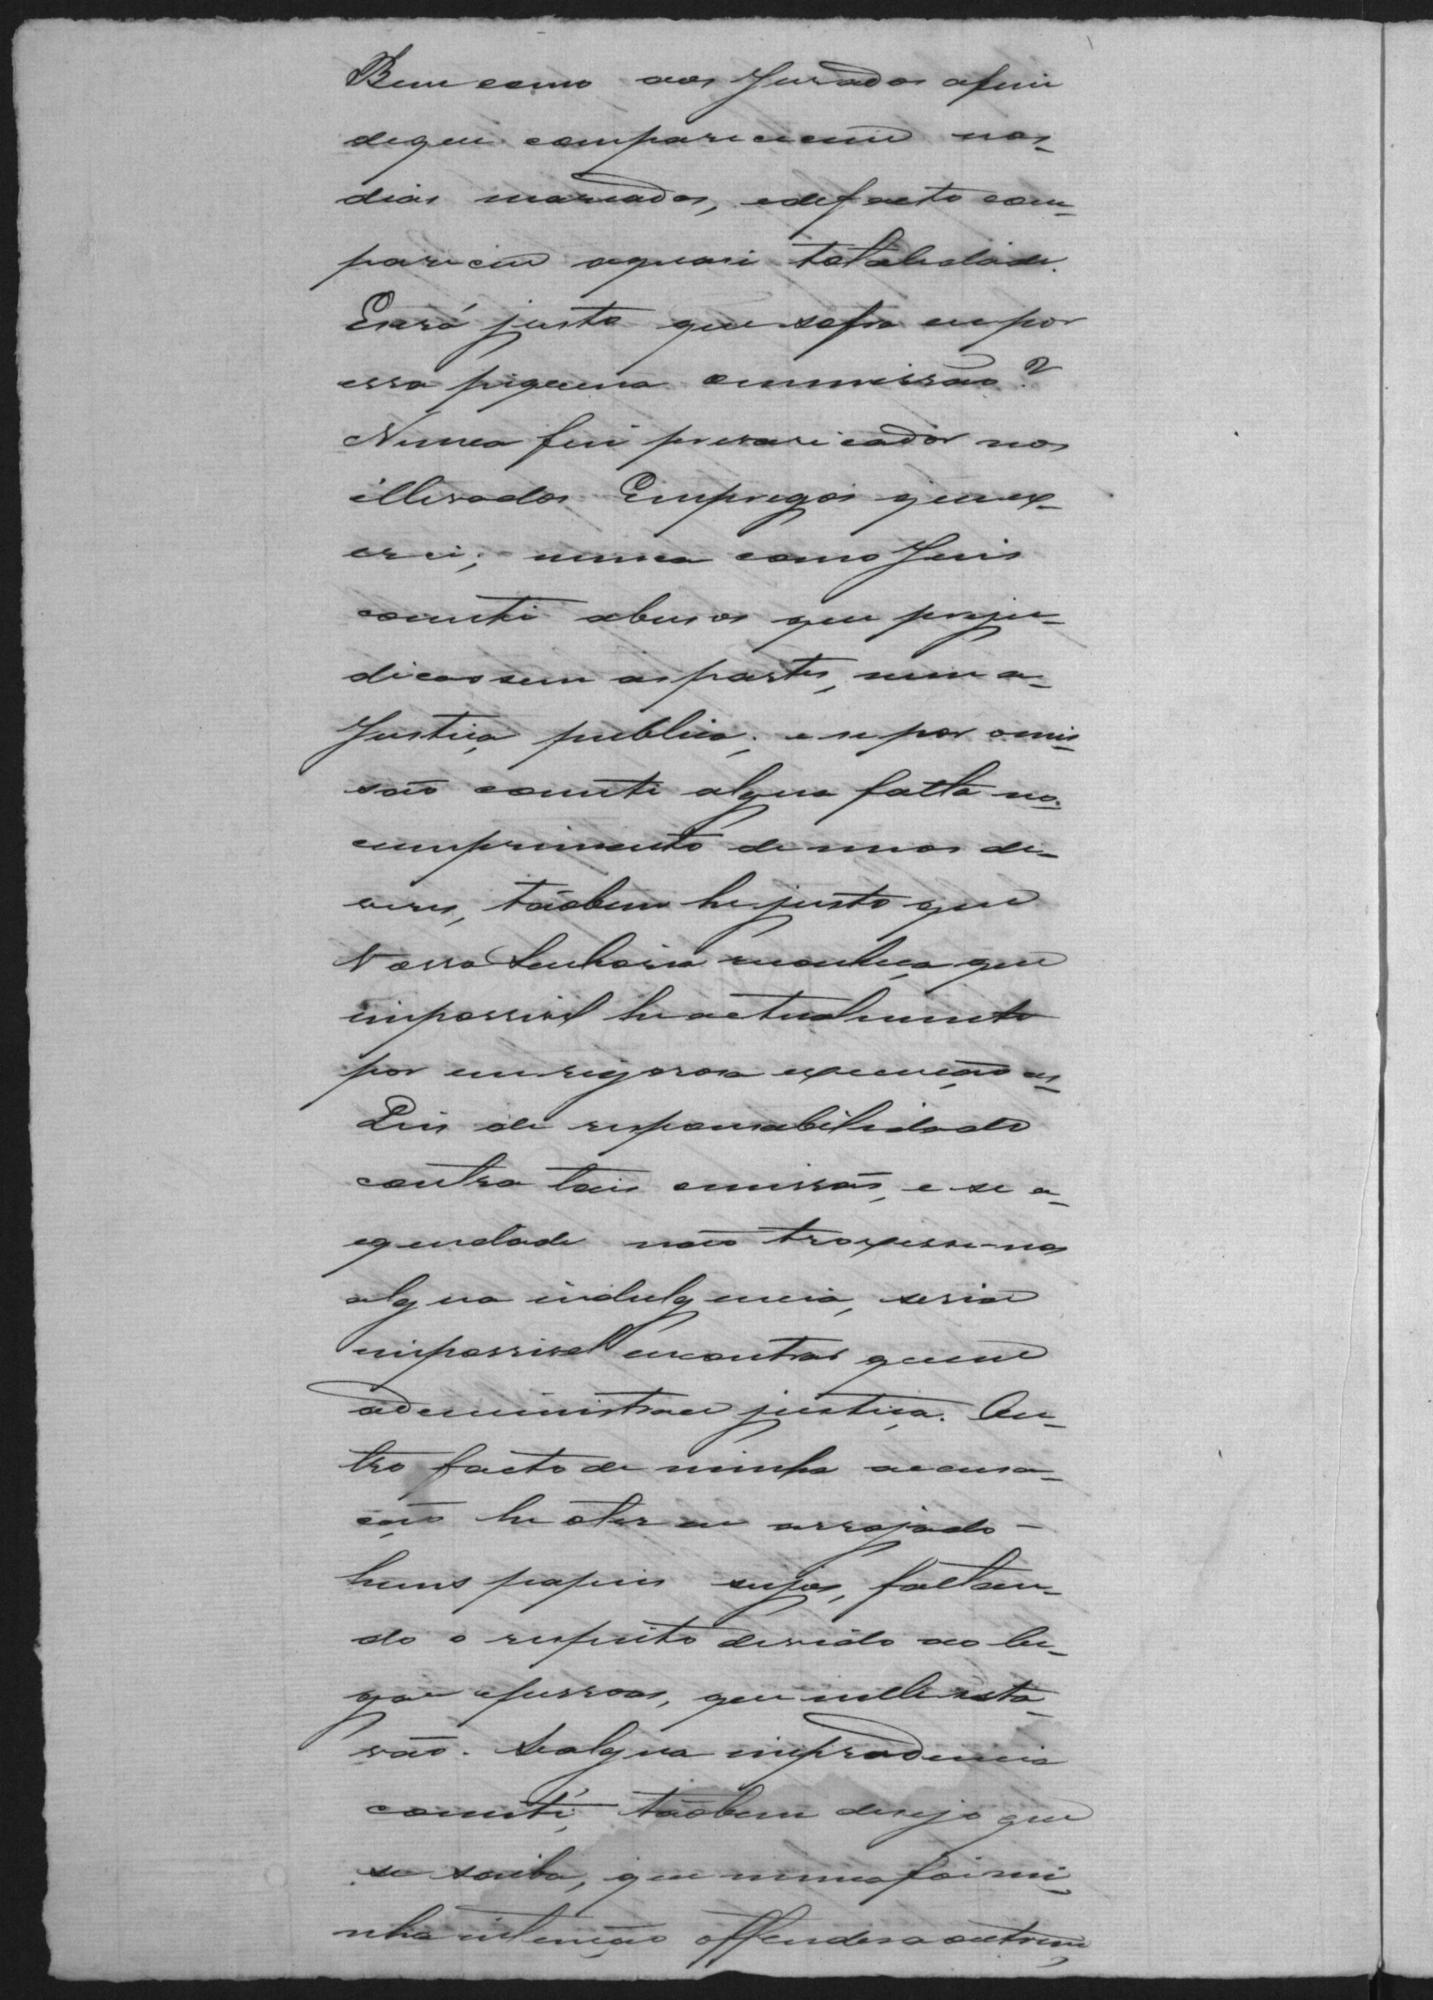 Bem como aos Jurados afim
deque comparecem nos
dias marcados, edefacto com-
parecem aquasi totalidade.
Esará justo que sofra eu por
essa piquena ommissão?
Nunca fui prevaricador nos
illevados Empregos quex-
erci; nunca como Juis
cometi abusos que preju-
dicassem as partes, nem a
Justiça publica; e se por omis-
são cometi algua falta no
cumprimento de meos de-
veres, tãobem he justo que
Vossa Senhoria conheça que
impossivel he actualmente
por em rigorosa execução as
Leis de responsabilidade
contra tais omissões, e se a
equidade não troxesse-nos
algua indulgencia, seria
impossivel encontrar quem
administrace justiça. Ou-
tro facto de minha accusa-
ção he oter eu arrojado
huns papeis sujos, faltan-
do o respeito devido ao lu-
gar epessoas, que nelle esta-
vão. Sealgua imprudencia
cometi, tãobem desejo que
se saiba, que nunca foi mi-
nha intenção offender a outrem,